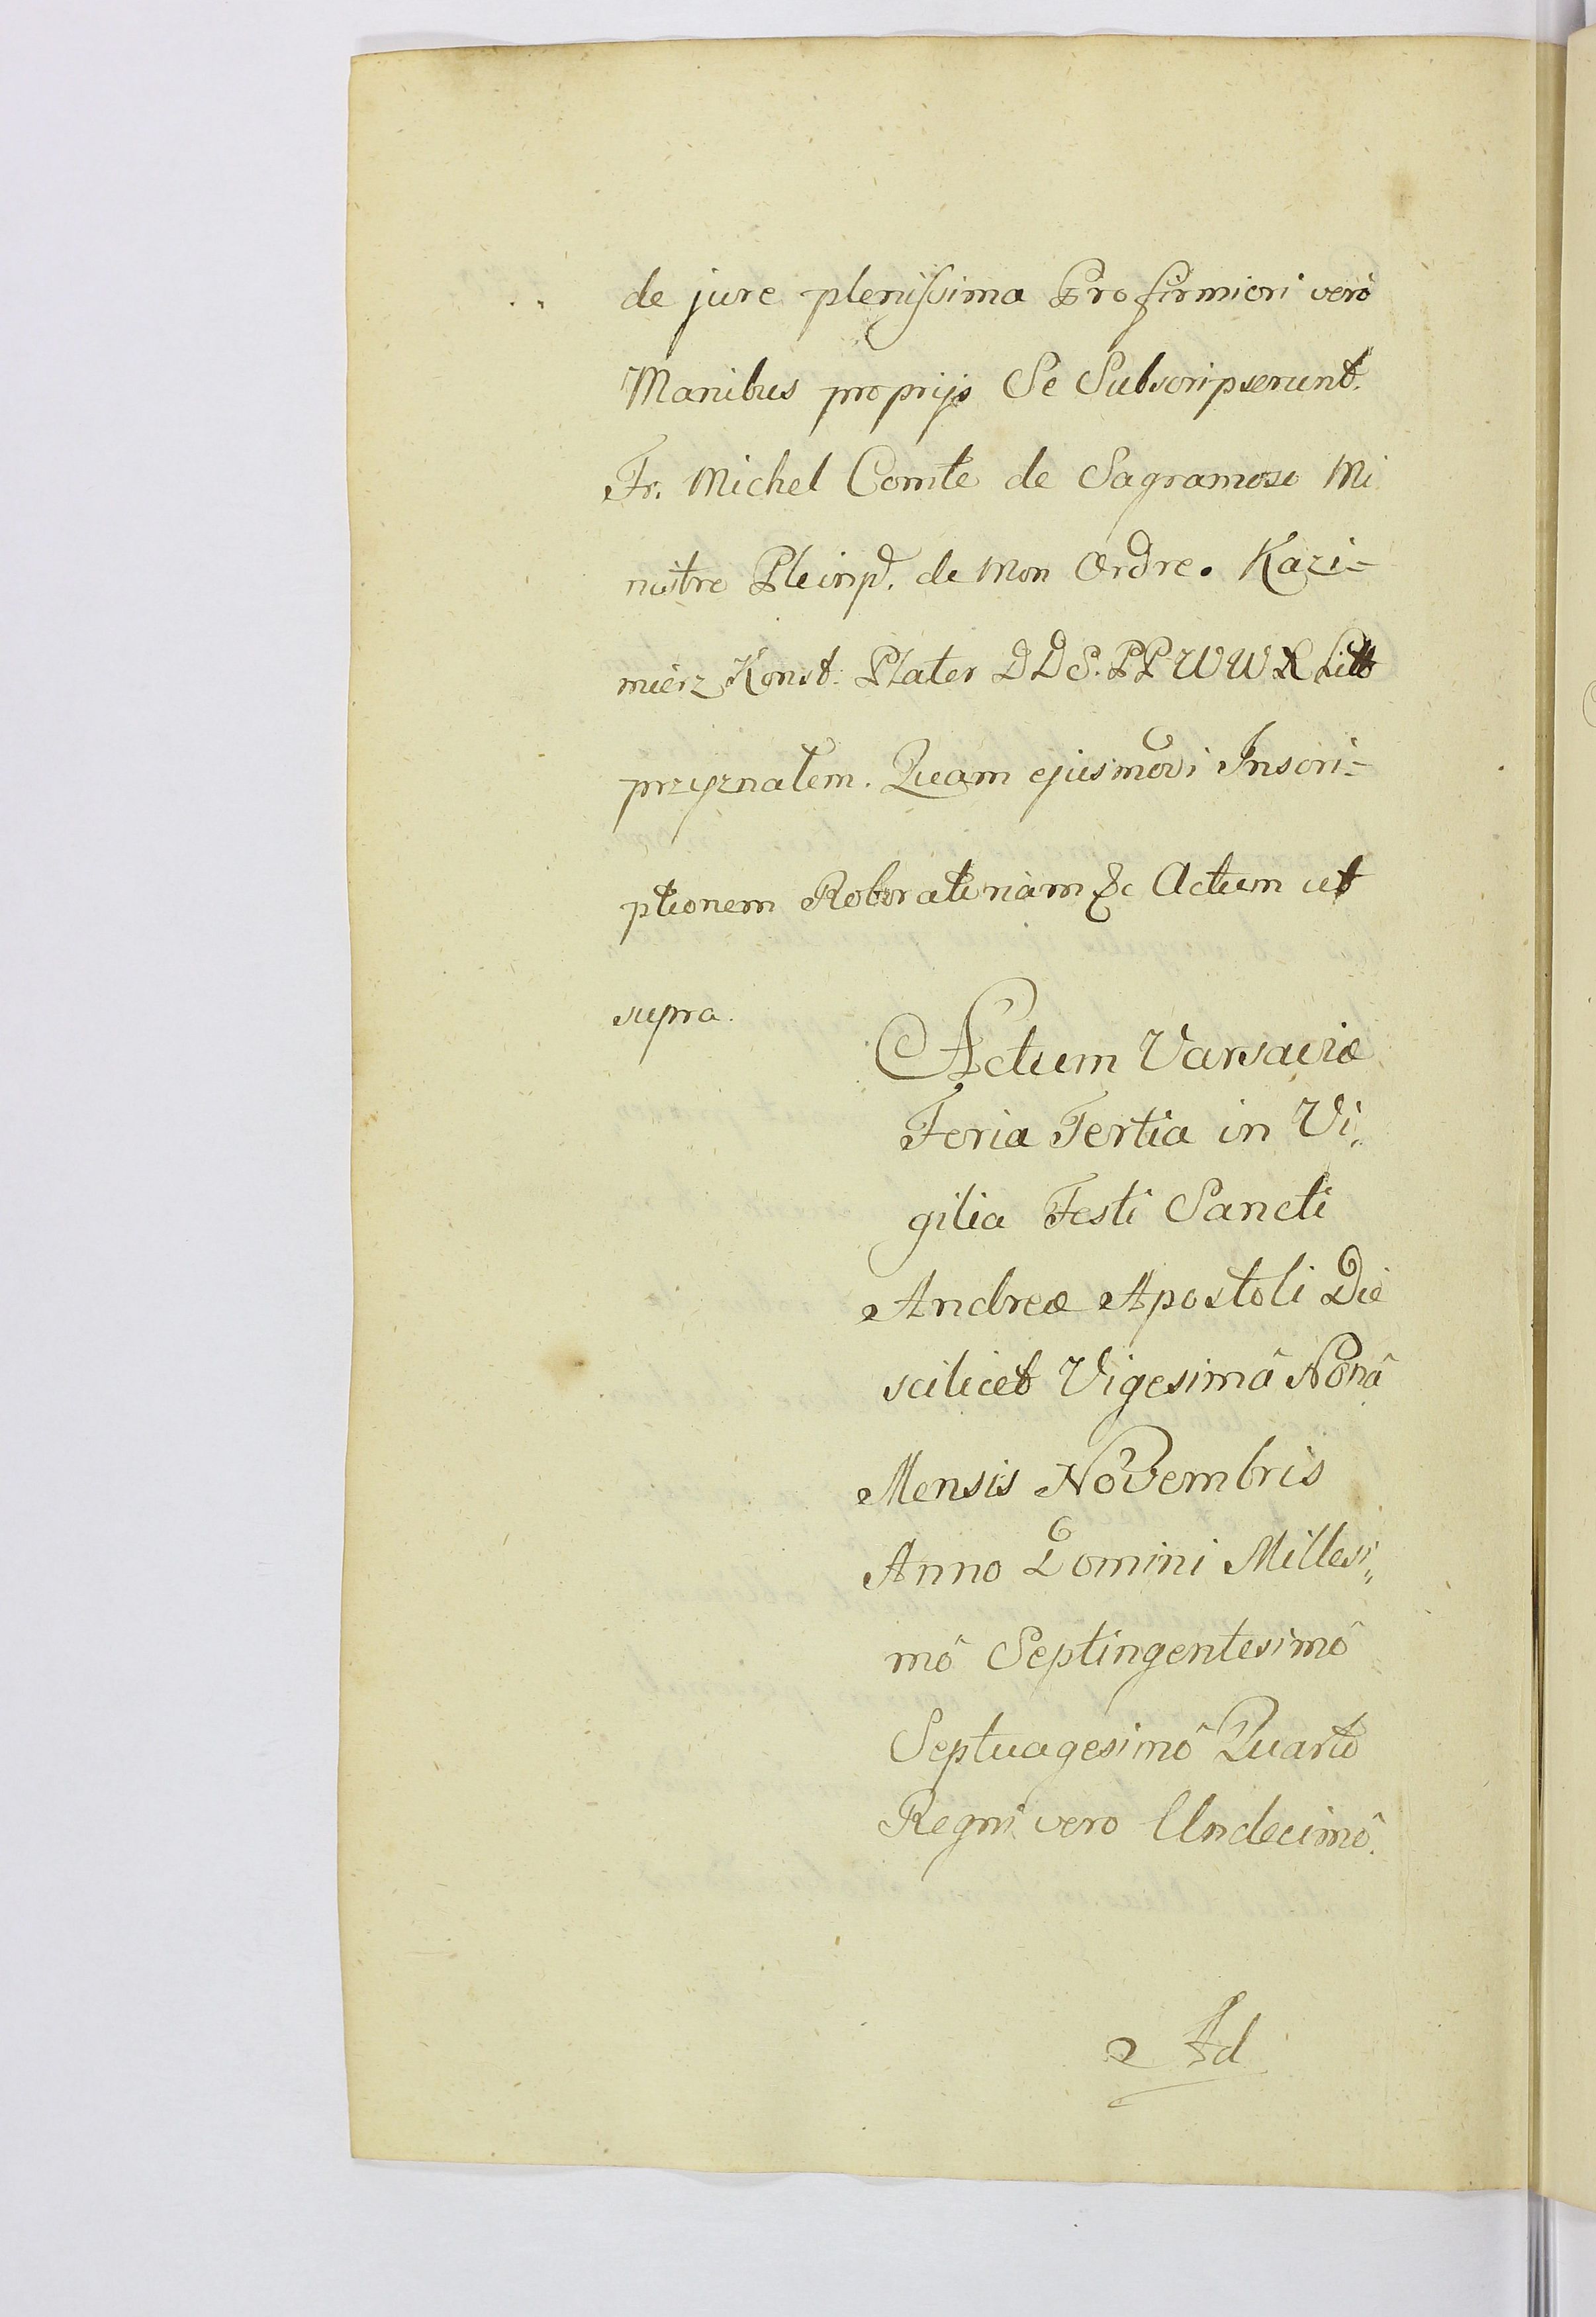 de jure plenissima Pro firmiori verò
Manibus proprijs Se Subscripserunt.
Fr. Michel Comte de Sagramoso Mi
nistre Pleinp. de Mon Ordre. Kazi=
mierz Konst. Plater DDS. PP WW X Litt
przyznałem. Quam ejusmodi Inscri=
ptionem Roboratoriam &c Actum ut
supra.
Actum Varsaviæ
Feria Tertia in Vi„
gilia Festi Sancti
Andreæ Apostoli Die
scilicet Vigesimâ Nonâ
Mensis Novembris
Anno Domini Millesi„
mô Septingentesimô
Septuagesimô Quarto
Regni vero Undecimô.
Ad